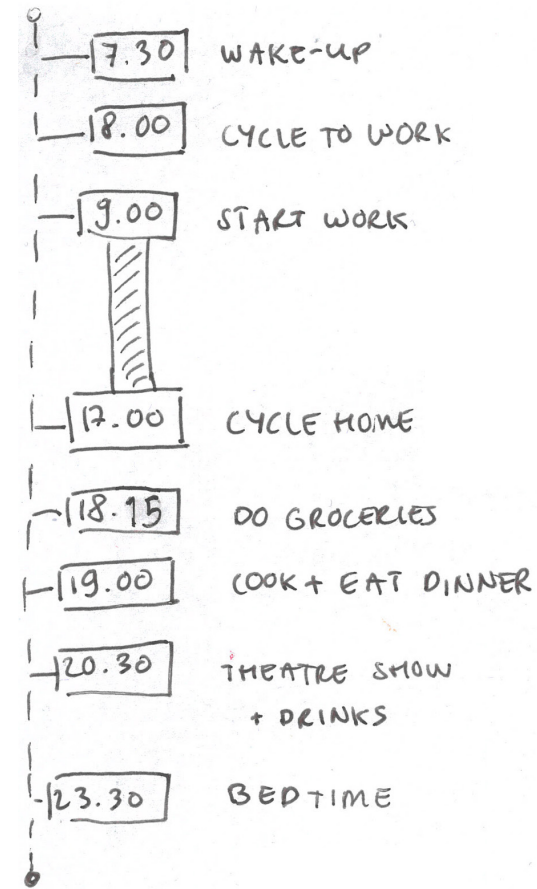 7.30 WAKE-UP
8.00 CYCLE TO WORK
9.00 START WORK
17.00 CYCLE HOME
18.15 DO GROCERIES
19.00 COOK + EAT DINNER
20.30 THEATRE SHOW
+ DRINKS
23.30 BEDTIME